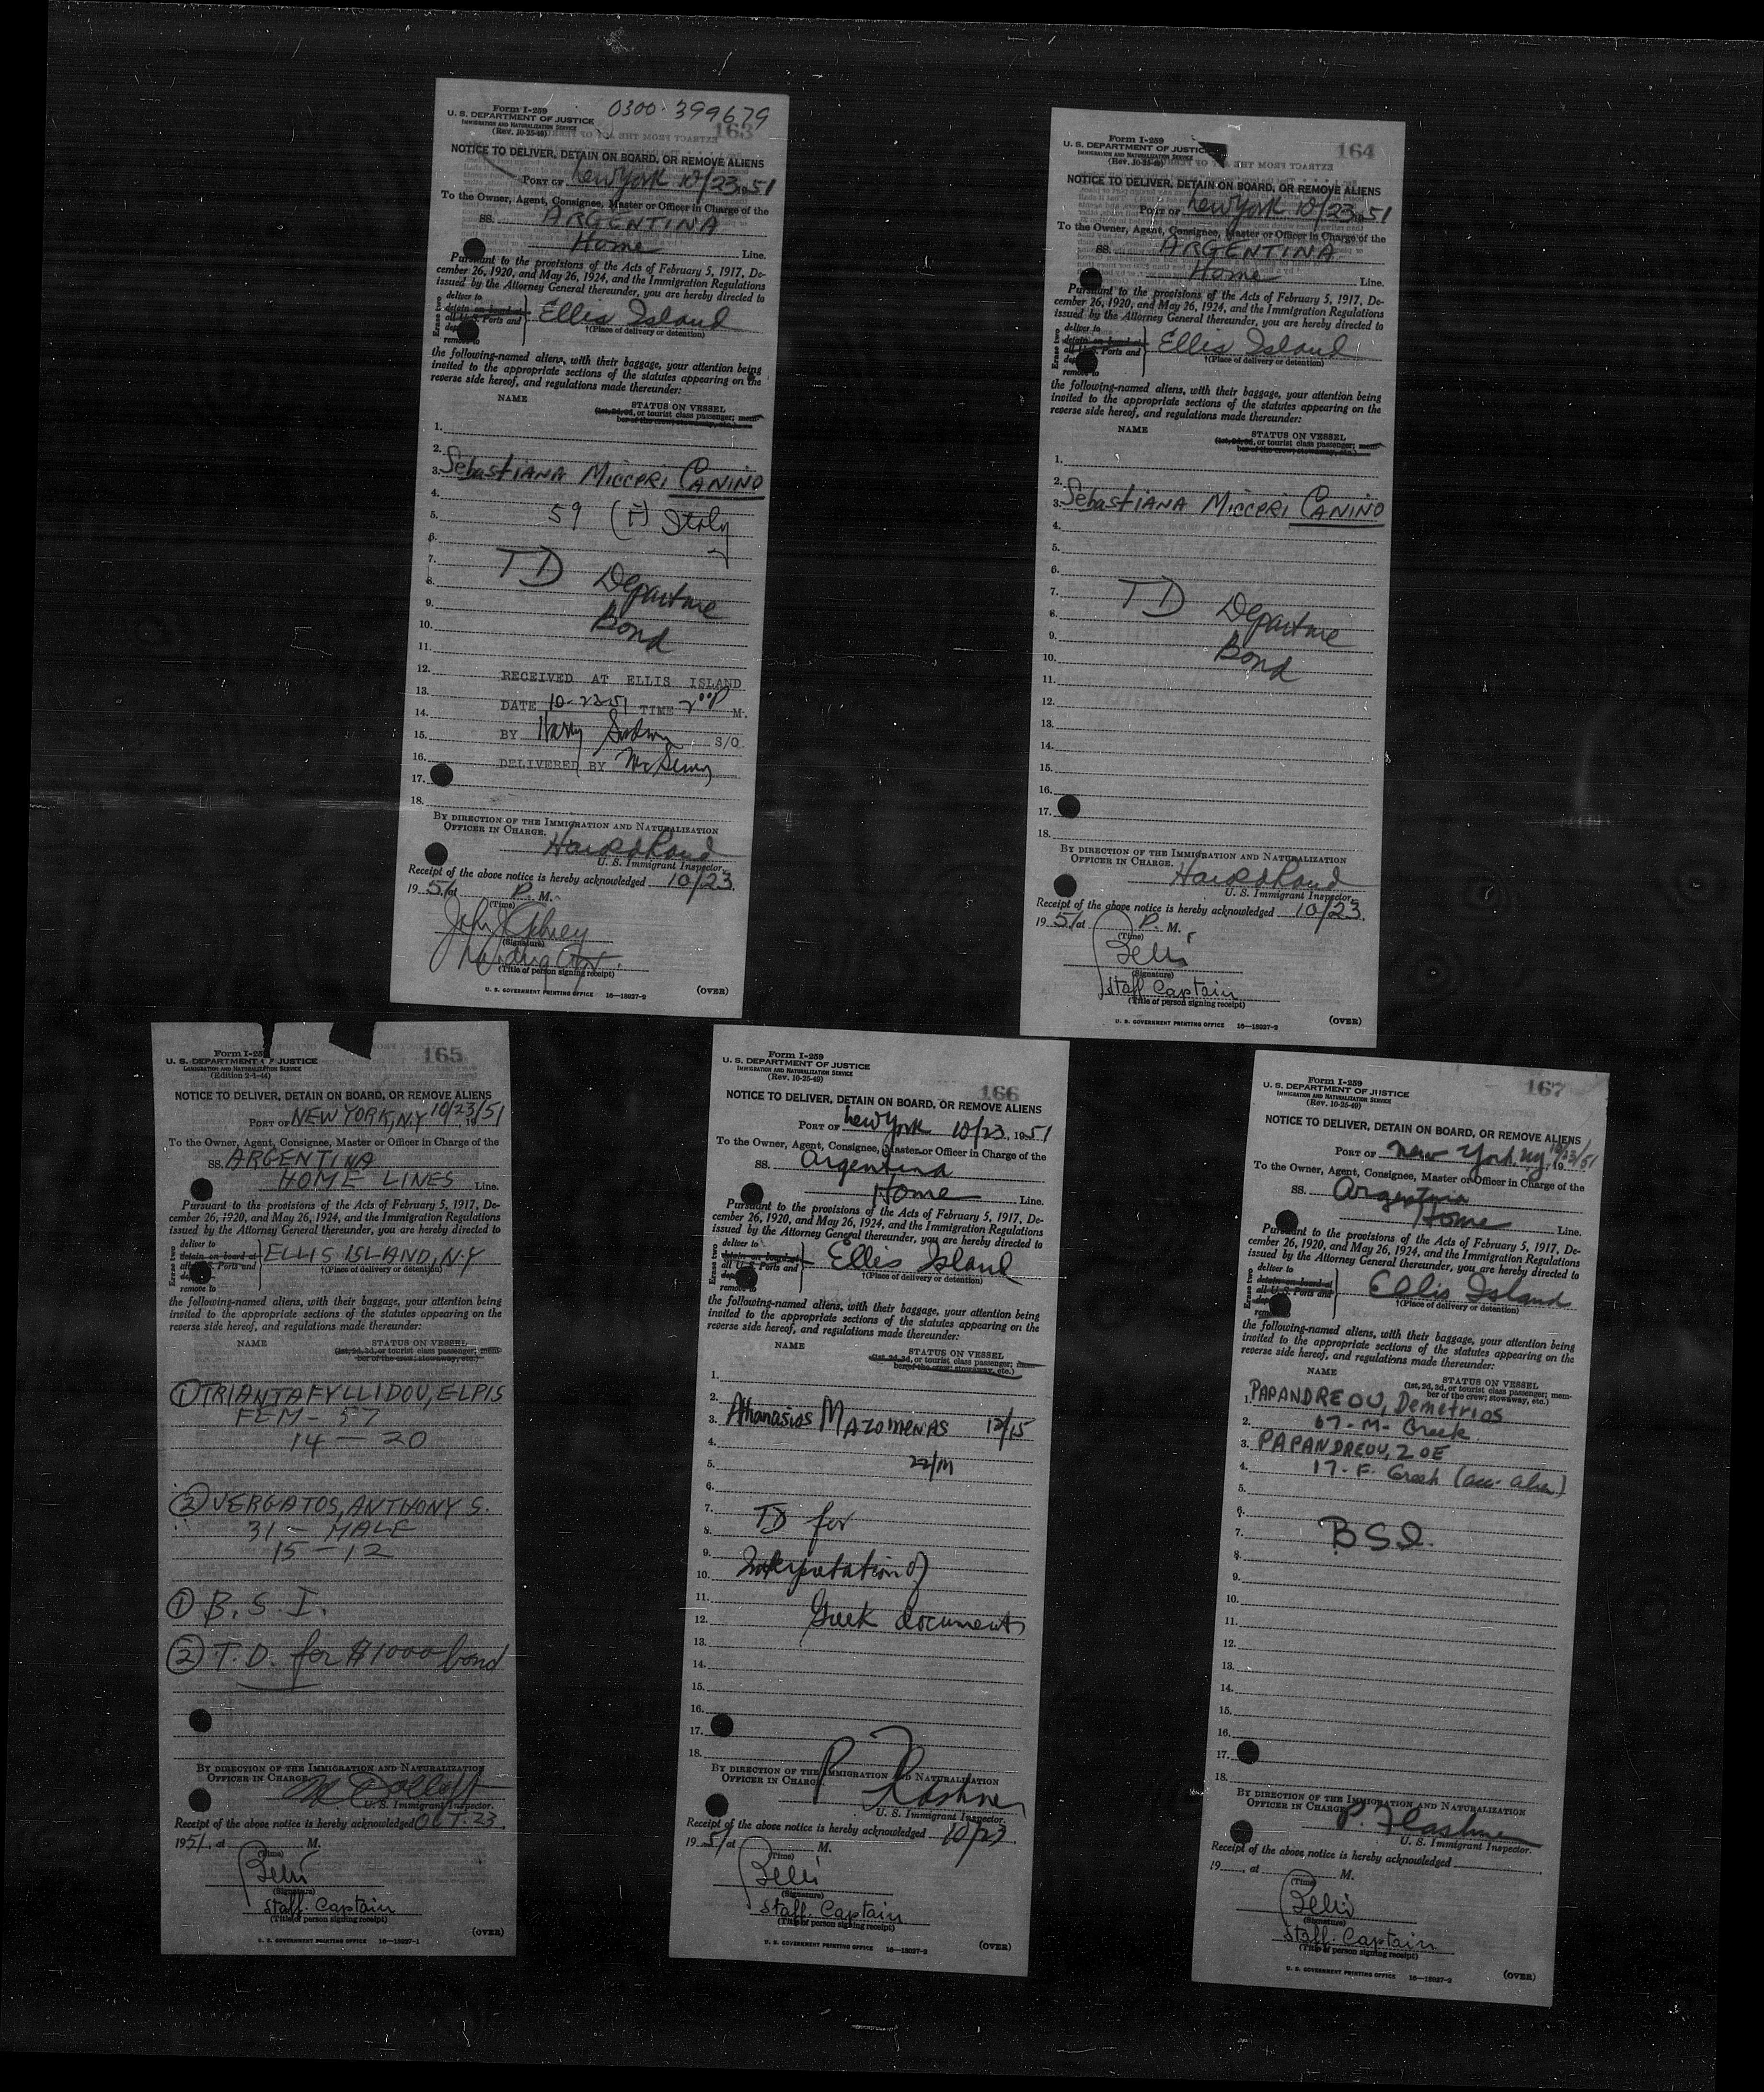 Form I-259
U. S. DEPARTMENT OF JUSTICE
IMMIGRATION AND NATURALIZATION SERVICE
(Rev. 10-25-49)
0300-399679
163
NOTICE TO DELIVER, DETAIN ON BOARD, OR REMOVE ALIENS
PORT OF New York 10/23, 1951
To the Owner, Agent, Consignee, Master or Officer in Charge of the
SS. ARGENTINA
Home Line.
Pursuant to the provisions of the Acts of February 5, 1917, De-
cember 26, 1920, and May 26, 1924, and the Immigration Regulations
issued by the Attorney General thereunder, you are hereby directed to
Erase two
deliver to
detain on board at
all U. S. Ports and
remove to
Ellis Island
†(Place of delivery or detention)
the following-named aliens, with their baggage, your attention being
invited to the appropriate sections of the statutes appearing on the
reverse side hereof, and regulations made thereunder:
NAME
STATUS ON VESSEL
(1st, 2d, 3d, or tourist class passenger; mem-
ber of the crew; stowaway, etc.)
1.
2.
3. Sebastiana Micceri CANINO
4.
5. 59 (F) Italy
6.
7. TD
8. Departure
9.
10. Bond
11.
12. RECEIVED AT ELLIS ISLAND
13. DATE 10-23-51 TIME 2 00 P M.
14.
15. BY Harry S/O
16. DELIVERED BY
17.
18.
BY DIRECTION OF THE IMMIGRATION AND NATURALIZATION
OFFICER IN CHARGE.
Harold Rand
U. S. Immigrant Inspector.
Receipt of the above notice is hereby acknowledged 10/23,
1951 at P. M.
(Time)
John
(Signature)
(Title of person signing receipt)
U. S. GOVERNMENT PRINTING OFFICE 16—18927-2 (OVER)
Form I-259
U. S. DEPARTMENT OF JUSTICE
IMMIGRATION AND NATURALIZATION SERVICE
(Rev. 10-25-49)
164
NOTICE TO DELIVER, DETAIN ON BOARD, OR REMOVE ALIENS
PORT OF New York 10/23, 1951
To the Owner, Agent, Consignee, Master or Officer in Charge of the
SS. ARGENTINA
Home Line.
Pursuant to the provisions of the Acts of February 5, 1917, De-
cember 26, 1920, and May 26, 1924, and the Immigration Regulations
issued by the Attorney General thereunder, you are hereby directed to
Erase two
deliver to
detain on board at
all U. S. Ports and
remove to
Ellis Island
†(Place of delivery or detention)
the following-named aliens, with their baggage, your attention being
invited to the appropriate sections of the statutes appearing on the
reverse side hereof, and regulations made thereunder:
NAME
STATUS ON VESSEL
(1st, 2d, 3d, or tourist class passenger; mem-
ber of the crew; stowaway, etc.)
1.
2.
3. Sebastiana Micceri CANINO
4.
5.
6.
7. TD
8. Departure
9.
10. Bond
11.
12.
13.
14.
15.
16.
17.
18.
BY DIRECTION OF THE IMMIGRATION AND NATURALIZATION
OFFICER IN CHARGE.
Harold Rand
U. S. Immigrant Inspector.
Receipt of the above notice is hereby acknowledged 10/23,
1951 at P. M.
(Time)
Belli
(Signature)
Staff Captain
(Title of person signing receipt)
U. S. GOVERNMENT PRINTING OFFICE 16—18927-2 (OVER)
Form I-259
U. S. DEPARTMENT OF JUSTICE
IMMIGRATION AND NATURALIZATION SERVICE
(Edition 2-1-44)
165
NOTICE TO DELIVER, DETAIN ON BOARD, OR REMOVE ALIENS
PORT OF NEW YORK, N.Y 10/23/51 19
To the Owner, Agent, Consignee, Master or Officer in Charge of the
SS. ARGENTINA
HOME LINES Line.
Pursuant to the provisions of the Acts of February 5, 1917, De-
cember 26, 1920, and May 26, 1924, and the Immigration Regulations
issued by the Attorney General thereunder, you are hereby directed to
Erase two
deliver to
detain on board at
all U. S. Ports and
remove to
ELLIS ISLAND, N.Y
†(Place of delivery or detention)
the following-named aliens, with their baggage, your attention being
invited to the appropriate sections of the statutes appearing on the
reverse side hereof, and regulations made thereunder:
NAME
STATUS ON VESSEL
(1st, 2d, 3d, or tourist class passenger; mem-
ber of the crew; stowaway, etc.)
① TRIANTAFYLLIDOU, ELPIS
FEM - 57
14 - 20
② VERGATOS, ANTHONY S.
31 - MALE
15 - 12
① B. S. I.
② T. D. for $1000 bond
BY DIRECTION OF THE IMMIGRATION AND NATURALIZATION
OFFICER IN CHARGE.
U. S. Immigrant Inspector.
Receipt of the above notice is hereby acknowledged OCT. 23,
1951, at M.
(Time)
Belli
(Signature)
Staff. Captain
(Title of person signing receipt)
U. S. GOVERNMENT PRINTING OFFICE 16—18927-1 (OVER)
Form I-259
U. S. DEPARTMENT OF JUSTICE
IMMIGRATION AND NATURALIZATION SERVICE
(Rev. 10-25-49)
166
NOTICE TO DELIVER, DETAIN ON BOARD, OR REMOVE ALIENS
PORT OF New York 10/23, 1951
To the Owner, Agent, Consignee, Master or Officer in Charge of the
SS. Argentina
Home Line.
Pursuant to the provisions of the Acts of February 5, 1917, De-
cember 26, 1920, and May 26, 1924, and the Immigration Regulations
issued by the Attorney General thereunder, you are hereby directed to
Erase two
deliver to
detain on board at
all U. S. Ports and
remove to
Ellis Island
†(Place of delivery or detention)
the following-named aliens, with their baggage, your attention being
invited to the appropriate sections of the statutes appearing on the
reverse side hereof, and regulations made thereunder:
NAME
STATUS ON VESSEL
(1st, 2d, 3d, or tourist class passenger; mem-
ber of the crew; stowaway, etc.)
1.
2.
3. Athanasios MAZOMENAS 12/15
4.
5. 22/M
6.
7. TD for
8.
9. Interpretation of
10.
11. Greek documents
12.
13.
14.
15.
16.
17.
18.
BY DIRECTION OF THE IMMIGRATION AND NATURALIZATION
OFFICER IN CHARGE.
P Flashner
U. S. Immigrant Inspector.
Receipt of the above notice is hereby acknowledged 10/23
1951 at M.
(Time)
Belli
(Signature)
Staff. Captain
(Title of person signing receipt)
U. S. GOVERNMENT PRINTING OFFICE 16—18927-2 (OVER)
Form I-259
U. S. DEPARTMENT OF JUSTICE
IMMIGRATION AND NATURALIZATION SERVICE
(Rev. 10-25-49)
167
NOTICE TO DELIVER, DETAIN ON BOARD, OR REMOVE ALIENS
PORT OF New York, NY 10/23/51, 19
To the Owner, Agent, Consignee, Master or Officer in Charge of the
SS. Argentina
Home Line.
Pursuant to the provisions of the Acts of February 5, 1917, De-
cember 26, 1920, and May 26, 1924, and the Immigration Regulations
issued by the Attorney General thereunder, you are hereby directed to
Erase two
deliver to
detain on board at
all U. S. Ports and
remove to
Ellis Island
†(Place of delivery or detention)
the following-named aliens, with their baggage, your attention being
invited to the appropriate sections of the statutes appearing on the
reverse side hereof, and regulations made thereunder:
NAME
STATUS ON VESSEL
(1st, 2d, 3d, or tourist class passenger; mem-
ber of the crew; stowaway, etc.)
1. PAPANDREOU, Demetrios
2. 67 - M - Greek
3. PAPANDREOU, ZOE
4. 17 - F. Greek (acc. alien)
5.
6.
7. B S I.
8.
9.
10.
11.
12.
13.
14.
15.
16.
17.
18.
BY DIRECTION OF THE IMMIGRATION AND NATURALIZATION
OFFICER IN CHARGE.
P. Flashner
U. S. Immigrant Inspector.
Receipt of the above notice is hereby acknowledged
19 , at M.
(Time)
Belli
(Signature)
Staff. Captain
(Title of person signing receipt)
U. S. GOVERNMENT PRINTING OFFICE 16—18927-2 (OVER)